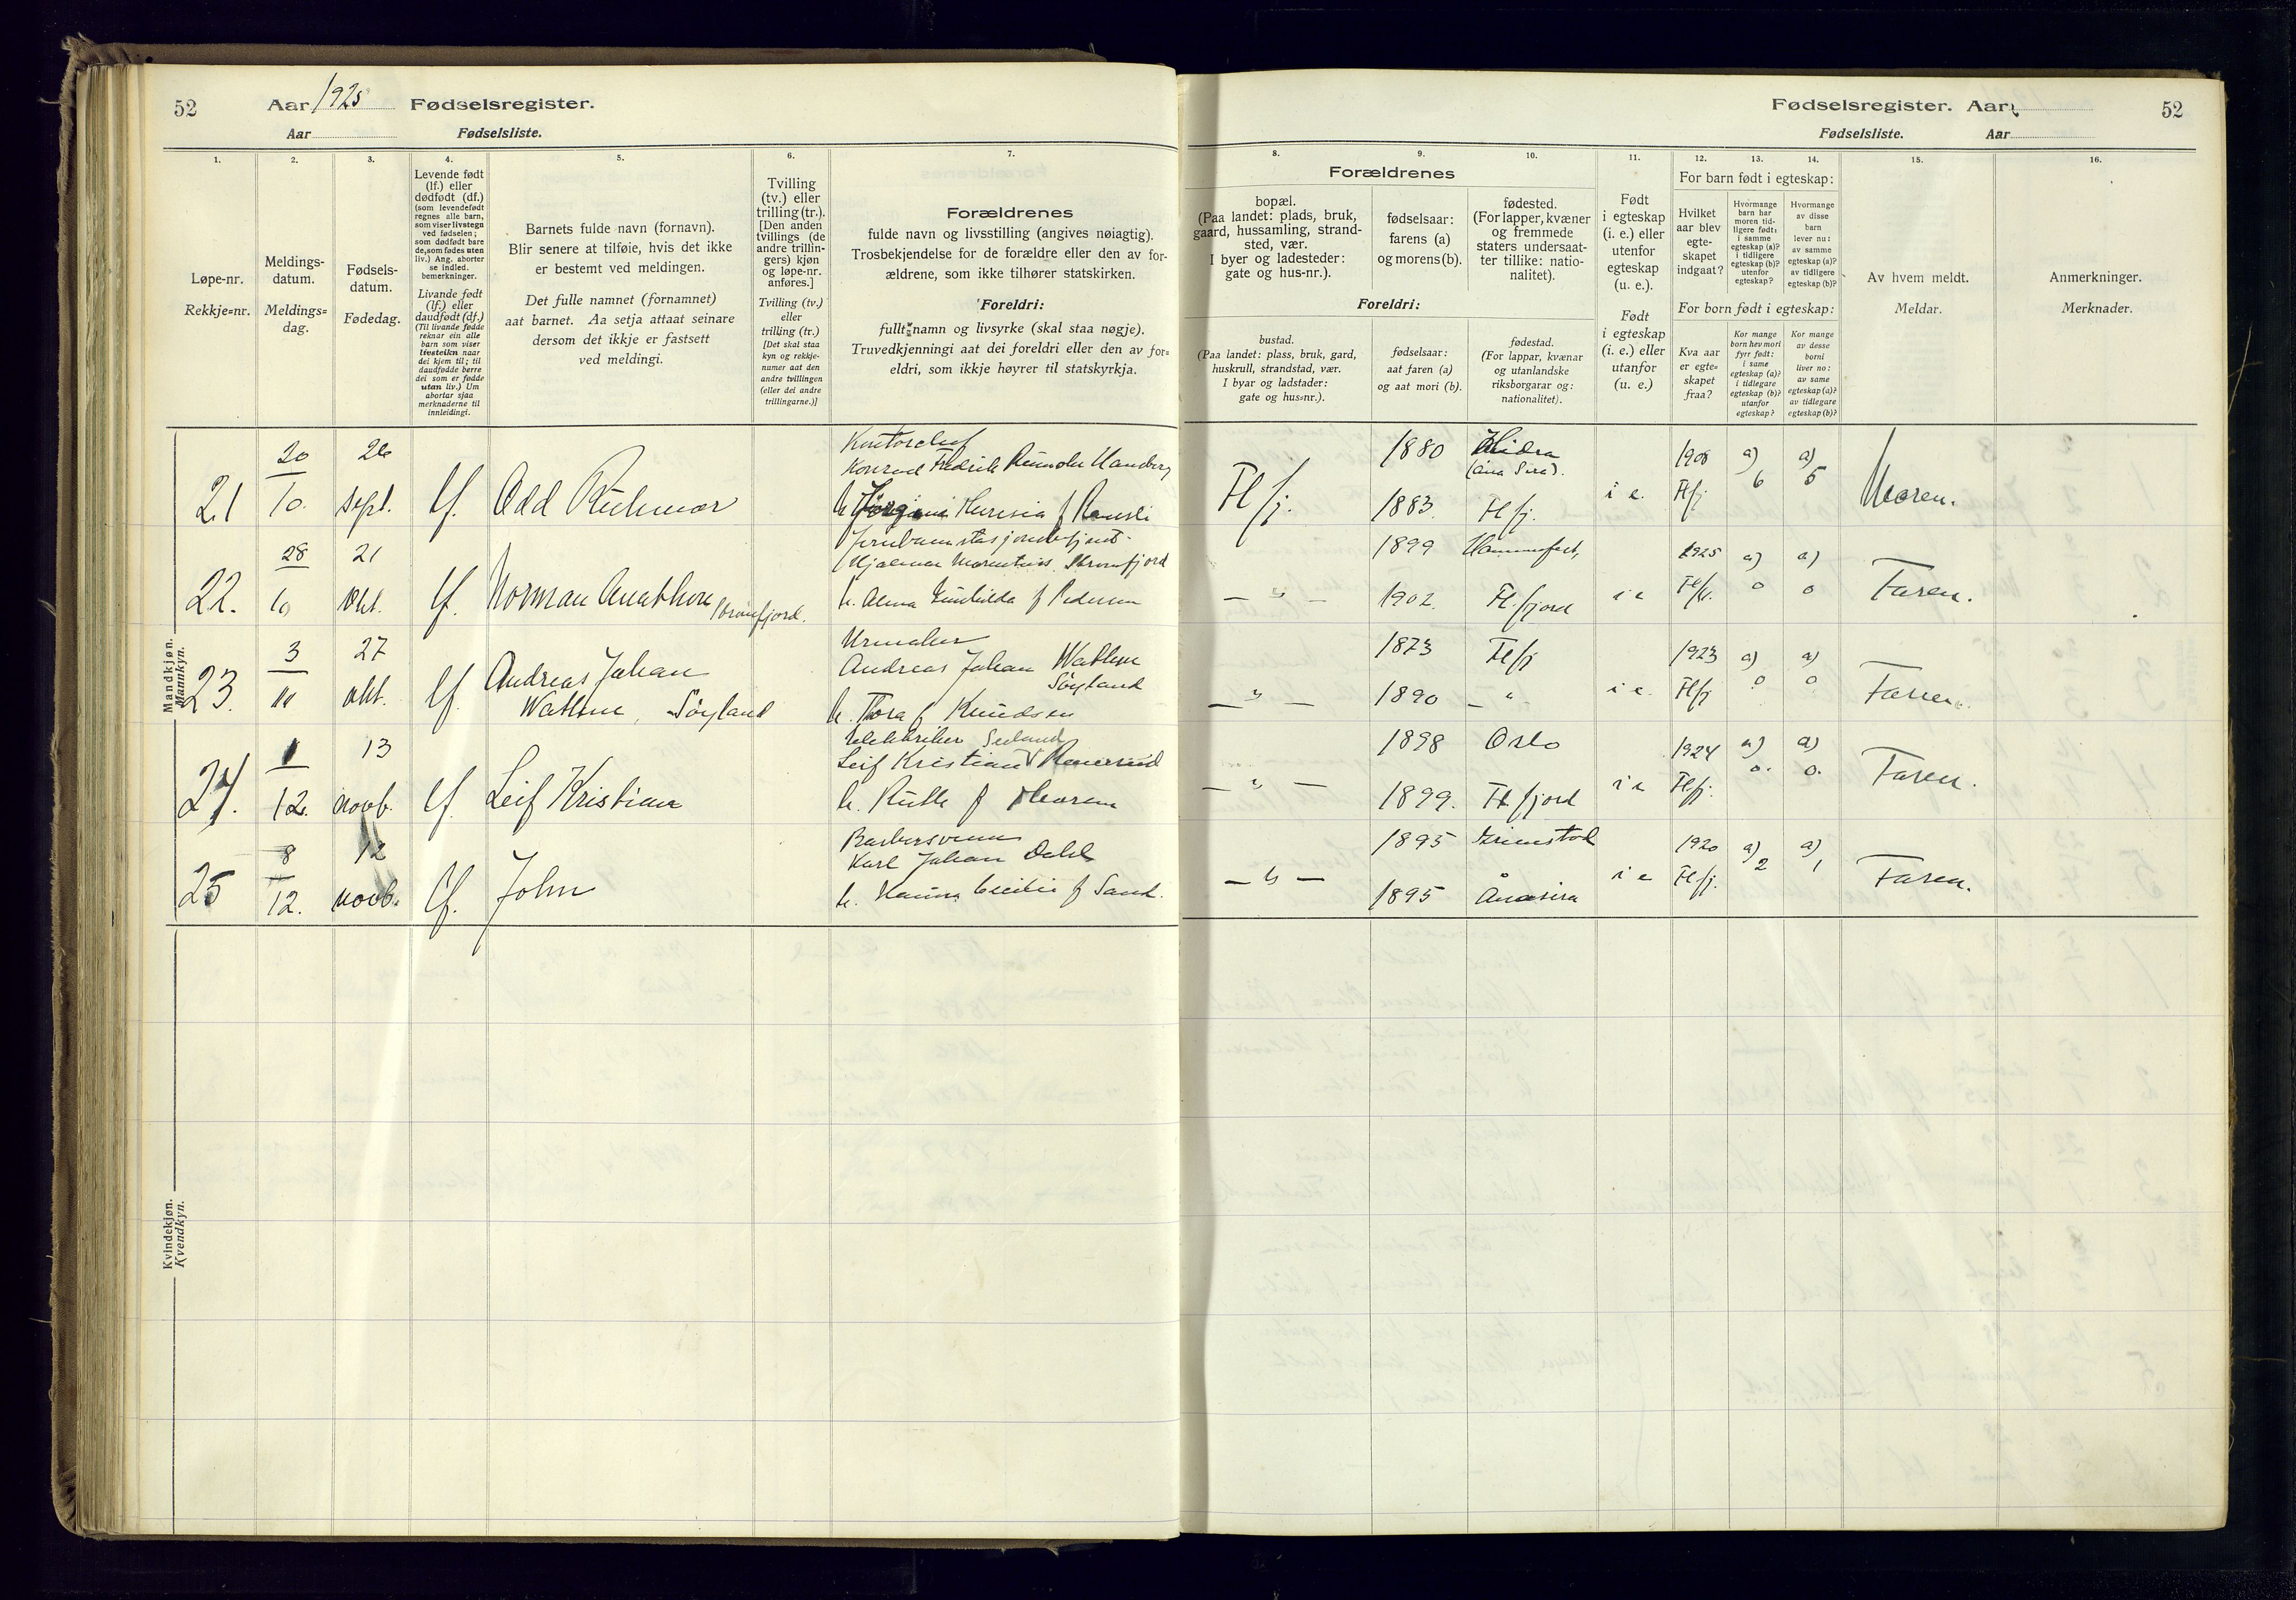 52
Aar 1925 Fødselsregister.
Aar Fødselsliste.
1.
2.
3.
4.
5.
6.
7.
Løpe-nr.
Rekkje=nr.
Meldings-
datum.
Meldings=
dag.
Fødsels-
datum.
Fødedag.
Levende født
(lf.) eller
dødfødt (df.)
(som levendefødt
regnes alle barn,
som viser livstegn
ved fødselen;
som dødfødt bare
de, som fødes uten
liv.) Ang. aborter
se indled.
bemerkninger.
Livande født
(lf.) eller
daudfødt (df.)
(Til livande fødde
reknar ein alle
barn som viser
livsteikn naar
dei kjem til; til
daudfødde berre
dei som er fødde
utan liv.) Um
abortar sjaa
merknaderne til
innleidingi.
Barnets fulde navn (fornavn).
Blir senere at tilføie, hvis det ikke
er bestemt ved meldingen.
Det fulle namnet (fornamnet)
aat barnet. Aa setja attaat seinare
dersom det ikkje er fastsett
ved meldingi.
Tvilling
(tv.) eller
trilling (tr.).
[Den anden
tvillings (de
andre trillin-
gers) kjøn
og løpe-nr.
anføres.]
Tvilling (tv.)
eller
trilling (tr.)
[Det skal staa
kyn og rekkje-
numer aat den
andre tvillingen
(eller dei andre
trillingarne.)]
Forældrenes
fulde navn og livsstilling (angives nøiagtig).
Trosbekjendelse for de forældre eller den av for-
ældrene, som ikke tilhører statskirken.
Foreldri:
fullt namn og livsyrke (skal staa nøgje).
Truvedkjenningi aat dei foreldri eller den av for=
eldri, som ikkje høyrer til statskyrkja.
Mandkjøn.
Mannkyn.
21
20
10.
26
sept.
lf.
Odd
f
22.
28
10
21
okt.
lf.
Norman
Hjalmar
h. Alma f Pedersen
23.
3
11
27
okt.
lf.
Andreas Johan
Wathne Söyland
Urmaker
Andreas Johan Wathne
Söyland
h. Thora f Knudsen
24.
1
12.
13
novb.
lf.
Leif Kristian
Leif Kristian
h. Ruth f
25
8
12.
12
novb.
lf.
John
Barbersvenn
Karl Johan Dahl
h. Hanna Cecilie f Sand.
Kvindekjøn.
Kvendkyn.
Fødselsregister. Aar 52
Fødselsliste. Aar
8.
9.
10.
11.
12.
13.
14.
15.
16.
Forældrenes
bopæl.
(Paa landet: plads, bruk,
gaard, hussamling, strand-
sted, vær.
I byer og ladesteder:
gate og hus-nr.).
fødselsaar:
farens (a)
og morens (b).
fødested.
(For lapper, kvæner
og fremmede
staters undersaat-
ter tillike: natio-
nalitet).
Foreldri:
bustad.
(Paa landet: plass, bruk, gard,
huskrull, strandstad, vær.
I byar og ladstader:
gate og hus=nr.).
fødselsaar:
aat faren (a)
og aat mori (b).
fødestad.
(For lappar, kvænar
og utanlandske
riksborgarar og:
nationalitet).
Født
i egteskap
(i. e.) eller
utenfor
egteskap
(u. e.).
Født
i egteskap
(i. e.) eller
utanfor
(u. e.)
For barn født i egteskap:
Hvilket
aar blev
egte-
skapet
indgaat?
Hvormange
barn har
moren tid-
ligere født:
i samme
egteskap (a)?
i tidligere
egteskap (b)?
utenfor
egteskap?
Hvormange
av disse
barn
lever nu:
av samme
egteskap (a)?
av tidligere
egteskap (b)?
For born født i egteskap:
Kva aar
er egte=
skapet
fraa?
Kor mange
born hev mori
fyrr født:
i same
egteskap (a)?
i tidlegare
egteskap (b)?
utanfor
egteskap?
Kor mange
av desse
borni
liver no:
av same
egteskap (a)?
av tidlegare
egteskap (b)?
Av hvem meldt.
Meldar.
Anmerkninger.
Merknader.
Fl/fj.
1880
1883.
Hidra
(Åna Sira).
Fl fj.
i e.
1906
Fl/fj.
a)
6
a)
5
Moren.
— " —
1899
1902.
Hammerfest,
Fl.fjord
i e
1925
a)
0
a)
0
Faren.
— " —
1873
1890
Fl/fj
— "
i e.
1923
Fl/fj
a)
0
a)
0
Faren.
— " —
1898
1899.
Oslo
Fl fjord
i e
1924
Fl/fj.
a)
0.
a)
0.
Faren.
— " —
1895
1895
Grimstad
Ånasira
i e
1920
Fl/fj.
a)
2
a)
1
Faren.